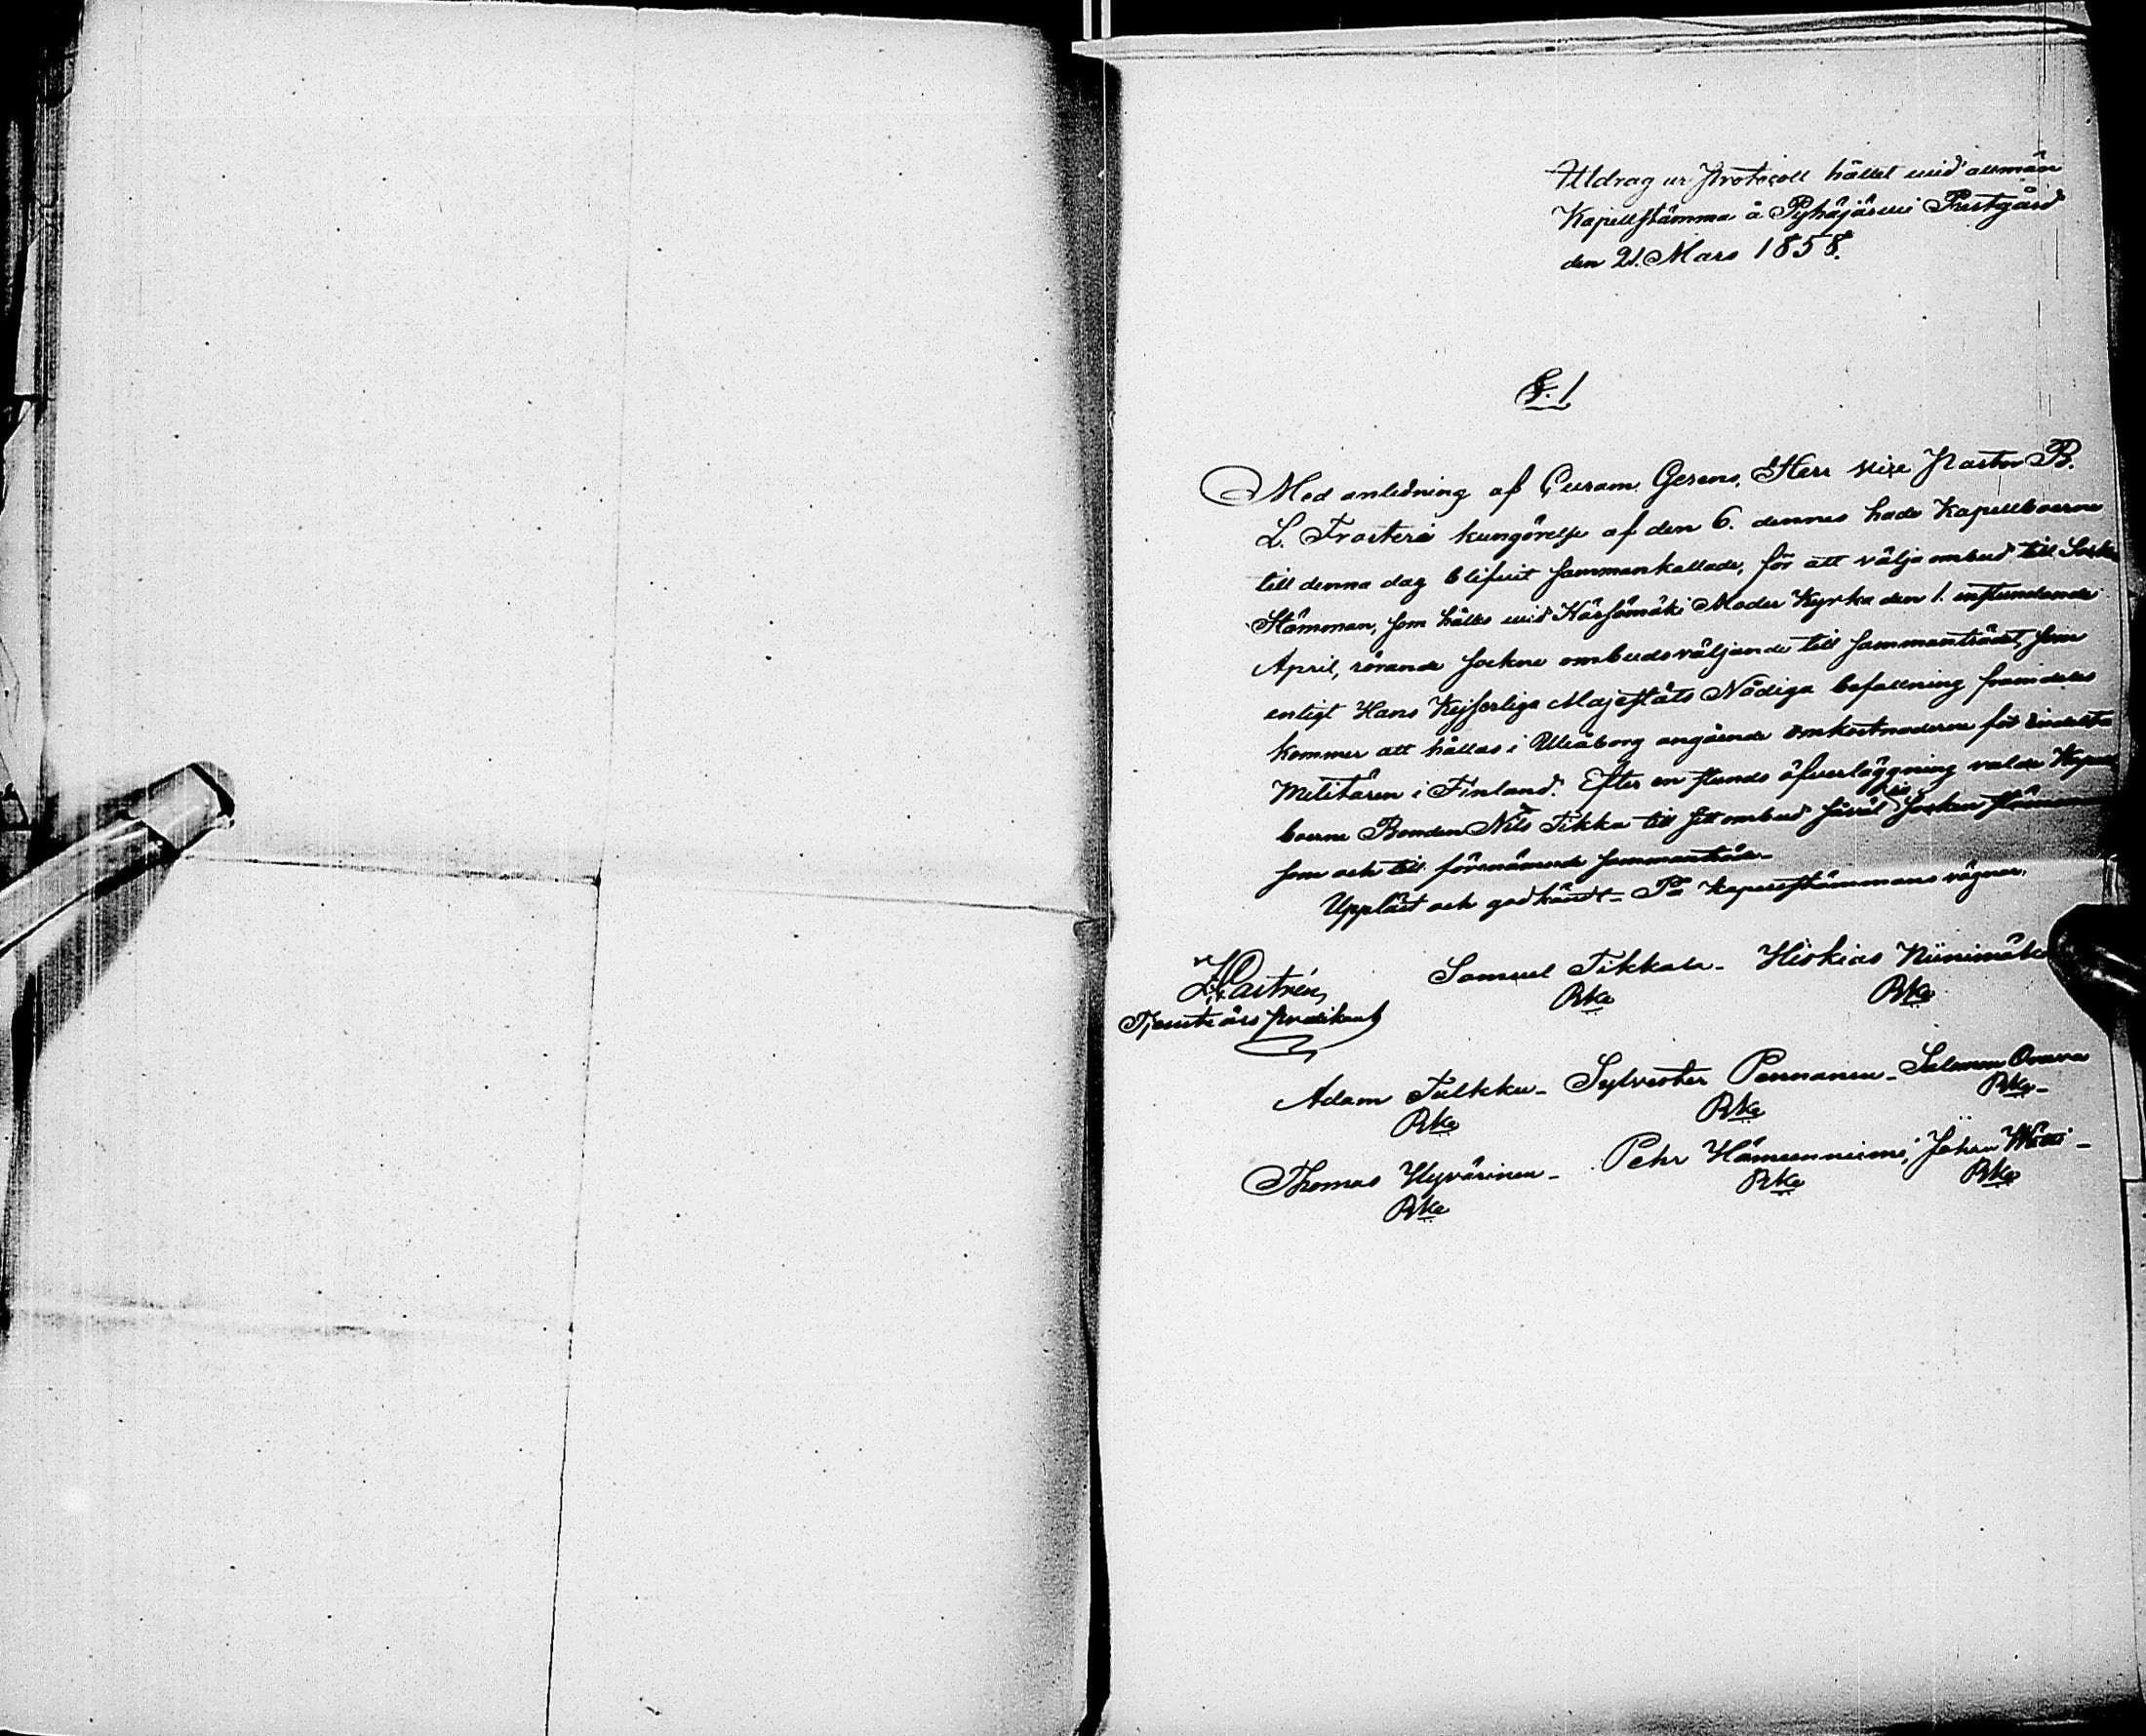 Utdrag ur Protocoll hållet vid allmän
Kapellstämma å Pyhäjärvi Prestgård
den 21. Mars 1858.
§. 1
Med anledning af Curam Gerens, Herr vice Pastor B.
L. Frosterus kungörelse af den 6. dennes hade Kapellboerne
till denna dag blifvit sammankallade, för att välja ombud till Socken
Stämman, som hålles vid Kärsämäki Moder Kyrka den 1. instundande
April, rörande sockne ombuds väljande till sammanträdet, som
enligt Hans Kejserliga Majestäts Nådiga befallning framdeles
kommer att hållas i Uleåborg angående omkostnaderne för Indelta
Militären i Finland. Efter en stunds öfverläggning valde Kapell
boerne Bonden Nils Tikka till sitt ombud såväl Socken stämman
som och till förenämnde sammanträde.
Uppläst och godkändt. På kapellstämmans vägnar.
Castrén
Tjensteårs predikant
Samuel Tikkala - Hiskias Niinimäki
Bke Bke
Adam Tulkku - Sylvester Pennanen - Salomon Orava
Bke Bke Bke -
Thomas Hyvärinen - Pehr Hämeenniemi, Johan
Bke Bke Bke